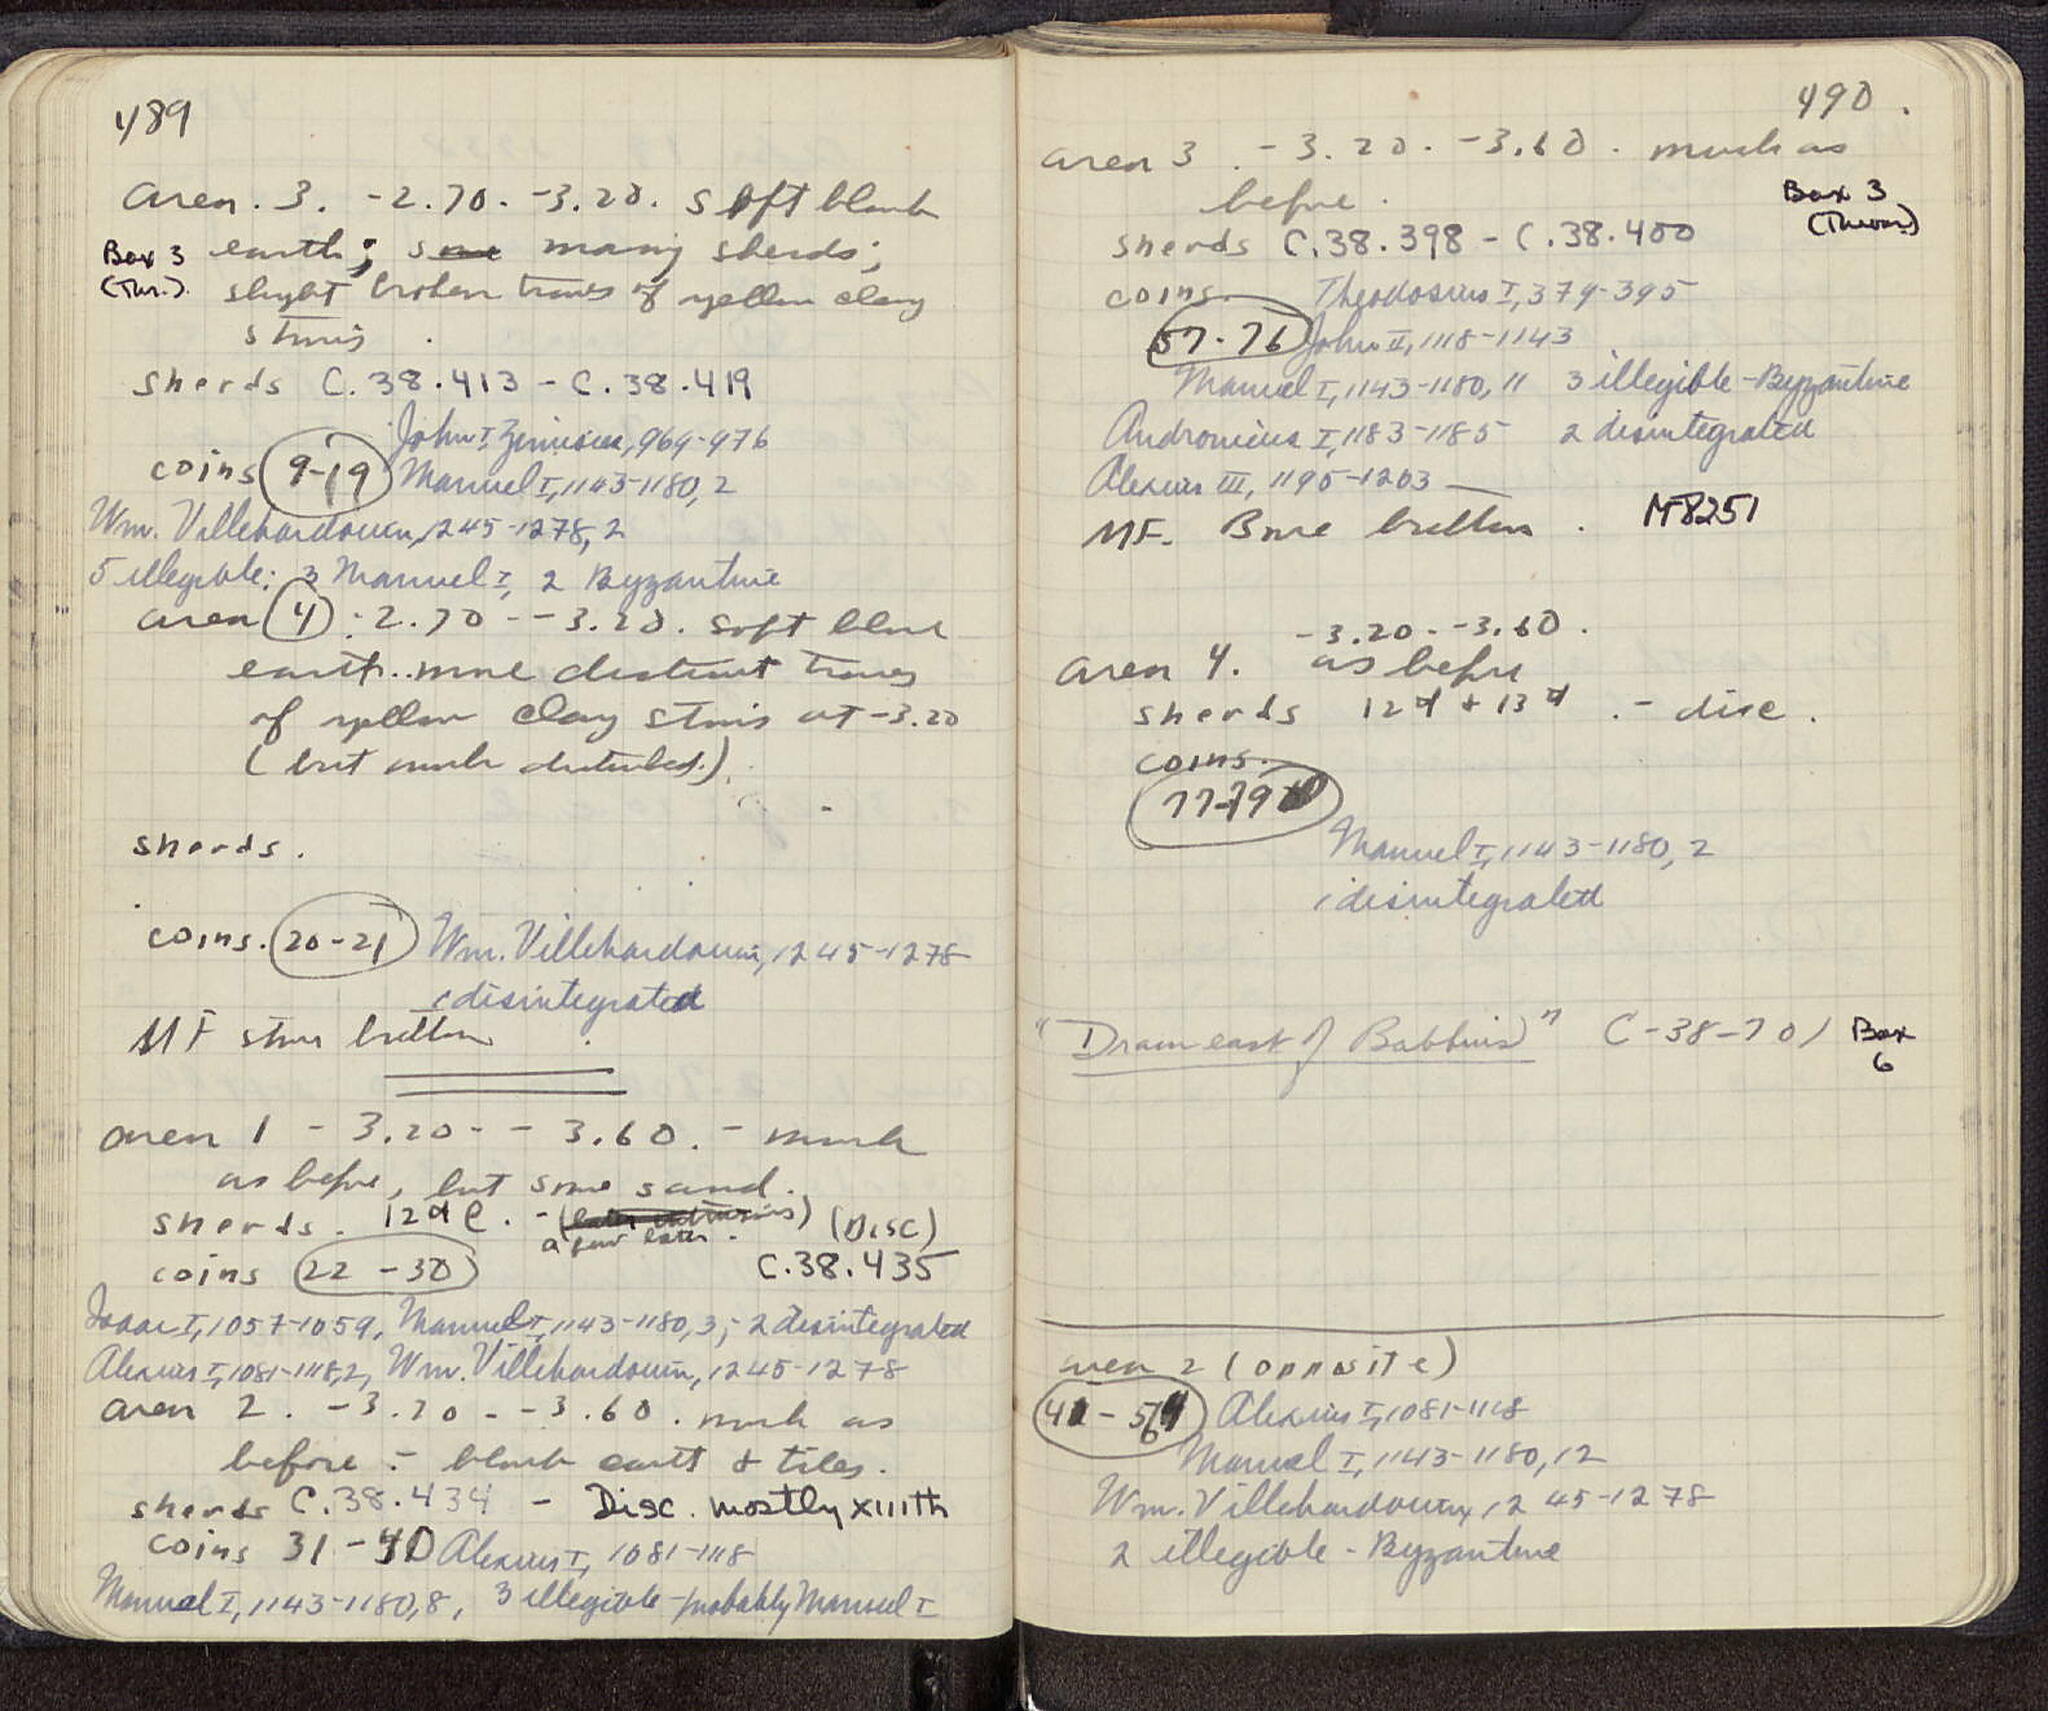 489
area. 3. -2.70. -3.20. soft black
Box 3 earth; some many sherds;
(Thr.). slight broken traces of yellow clay
strris .
sherds C.38.413 - C.38.419
John I Zimisces, 969-976
coins 9-19 Manuel I, 1143-1180, 2
Wm. Villehardouin, 1245-1278, 2
5 illegible: 3 Manuel I, 2 Byzantine
area 4 -2.70 - -3.20. soft black
earth.. more distinct traces
of yellow clay strris at -3.20
(but much disturbed.).
sherds.
coins. 20-21 Wm. Villehardouin, 1245-1278
1 disintegrated
MF button
area 1 - 3.20 - - 3.60. - much
as before, but some sand.
sherds. 12th C. - (later intrusions) (Disc)
a few later.
coins 22 - 30 C.38.435
Isaac I, 1057-1059, Manuel I, 1143-1180, 3; 2 disintegrated
Alexius I, 1081-1118, 2, Wm. Villehardouin, 1245-1278
area 2. -3.20 - -3.60. much as
before - black earth & tiles.
sherds C.38.434 - Disc. mostly XIIIth
coins 31-40 Alexius I, 1081-1118
Manuel I, 1143-1180, 8, 3 illegible - probably Manuel I
490.
area 3. -3.20. -3.60. much as
before.
Box 3
sherds C.38.398 - C.38.400
coins. Theodosius I, 379-395
57-76 John II, 1118-1143
Manuel I, 1143-1180, 11 3 illegible - Byzantine
Andronicus I, 1183-1185 2 disintegrated
Alexius III, 1195-1203
MF. Bone button. MF8251
-3.20. -3.60.
area 4. as before
sherds 12th + 13th. - disc.
coins.
77-79
Manuel I, 1143-1180, 2
1 disintegrated
"Drain east of Babbius" C-38-701 Box
6
area 2 (opposite)
41 - 56 Alexius I, 1081-1118
Manuel I, 1143-1180, 12
Wm. Villehardouin, 1245-1278
2 illegible - Byzantine